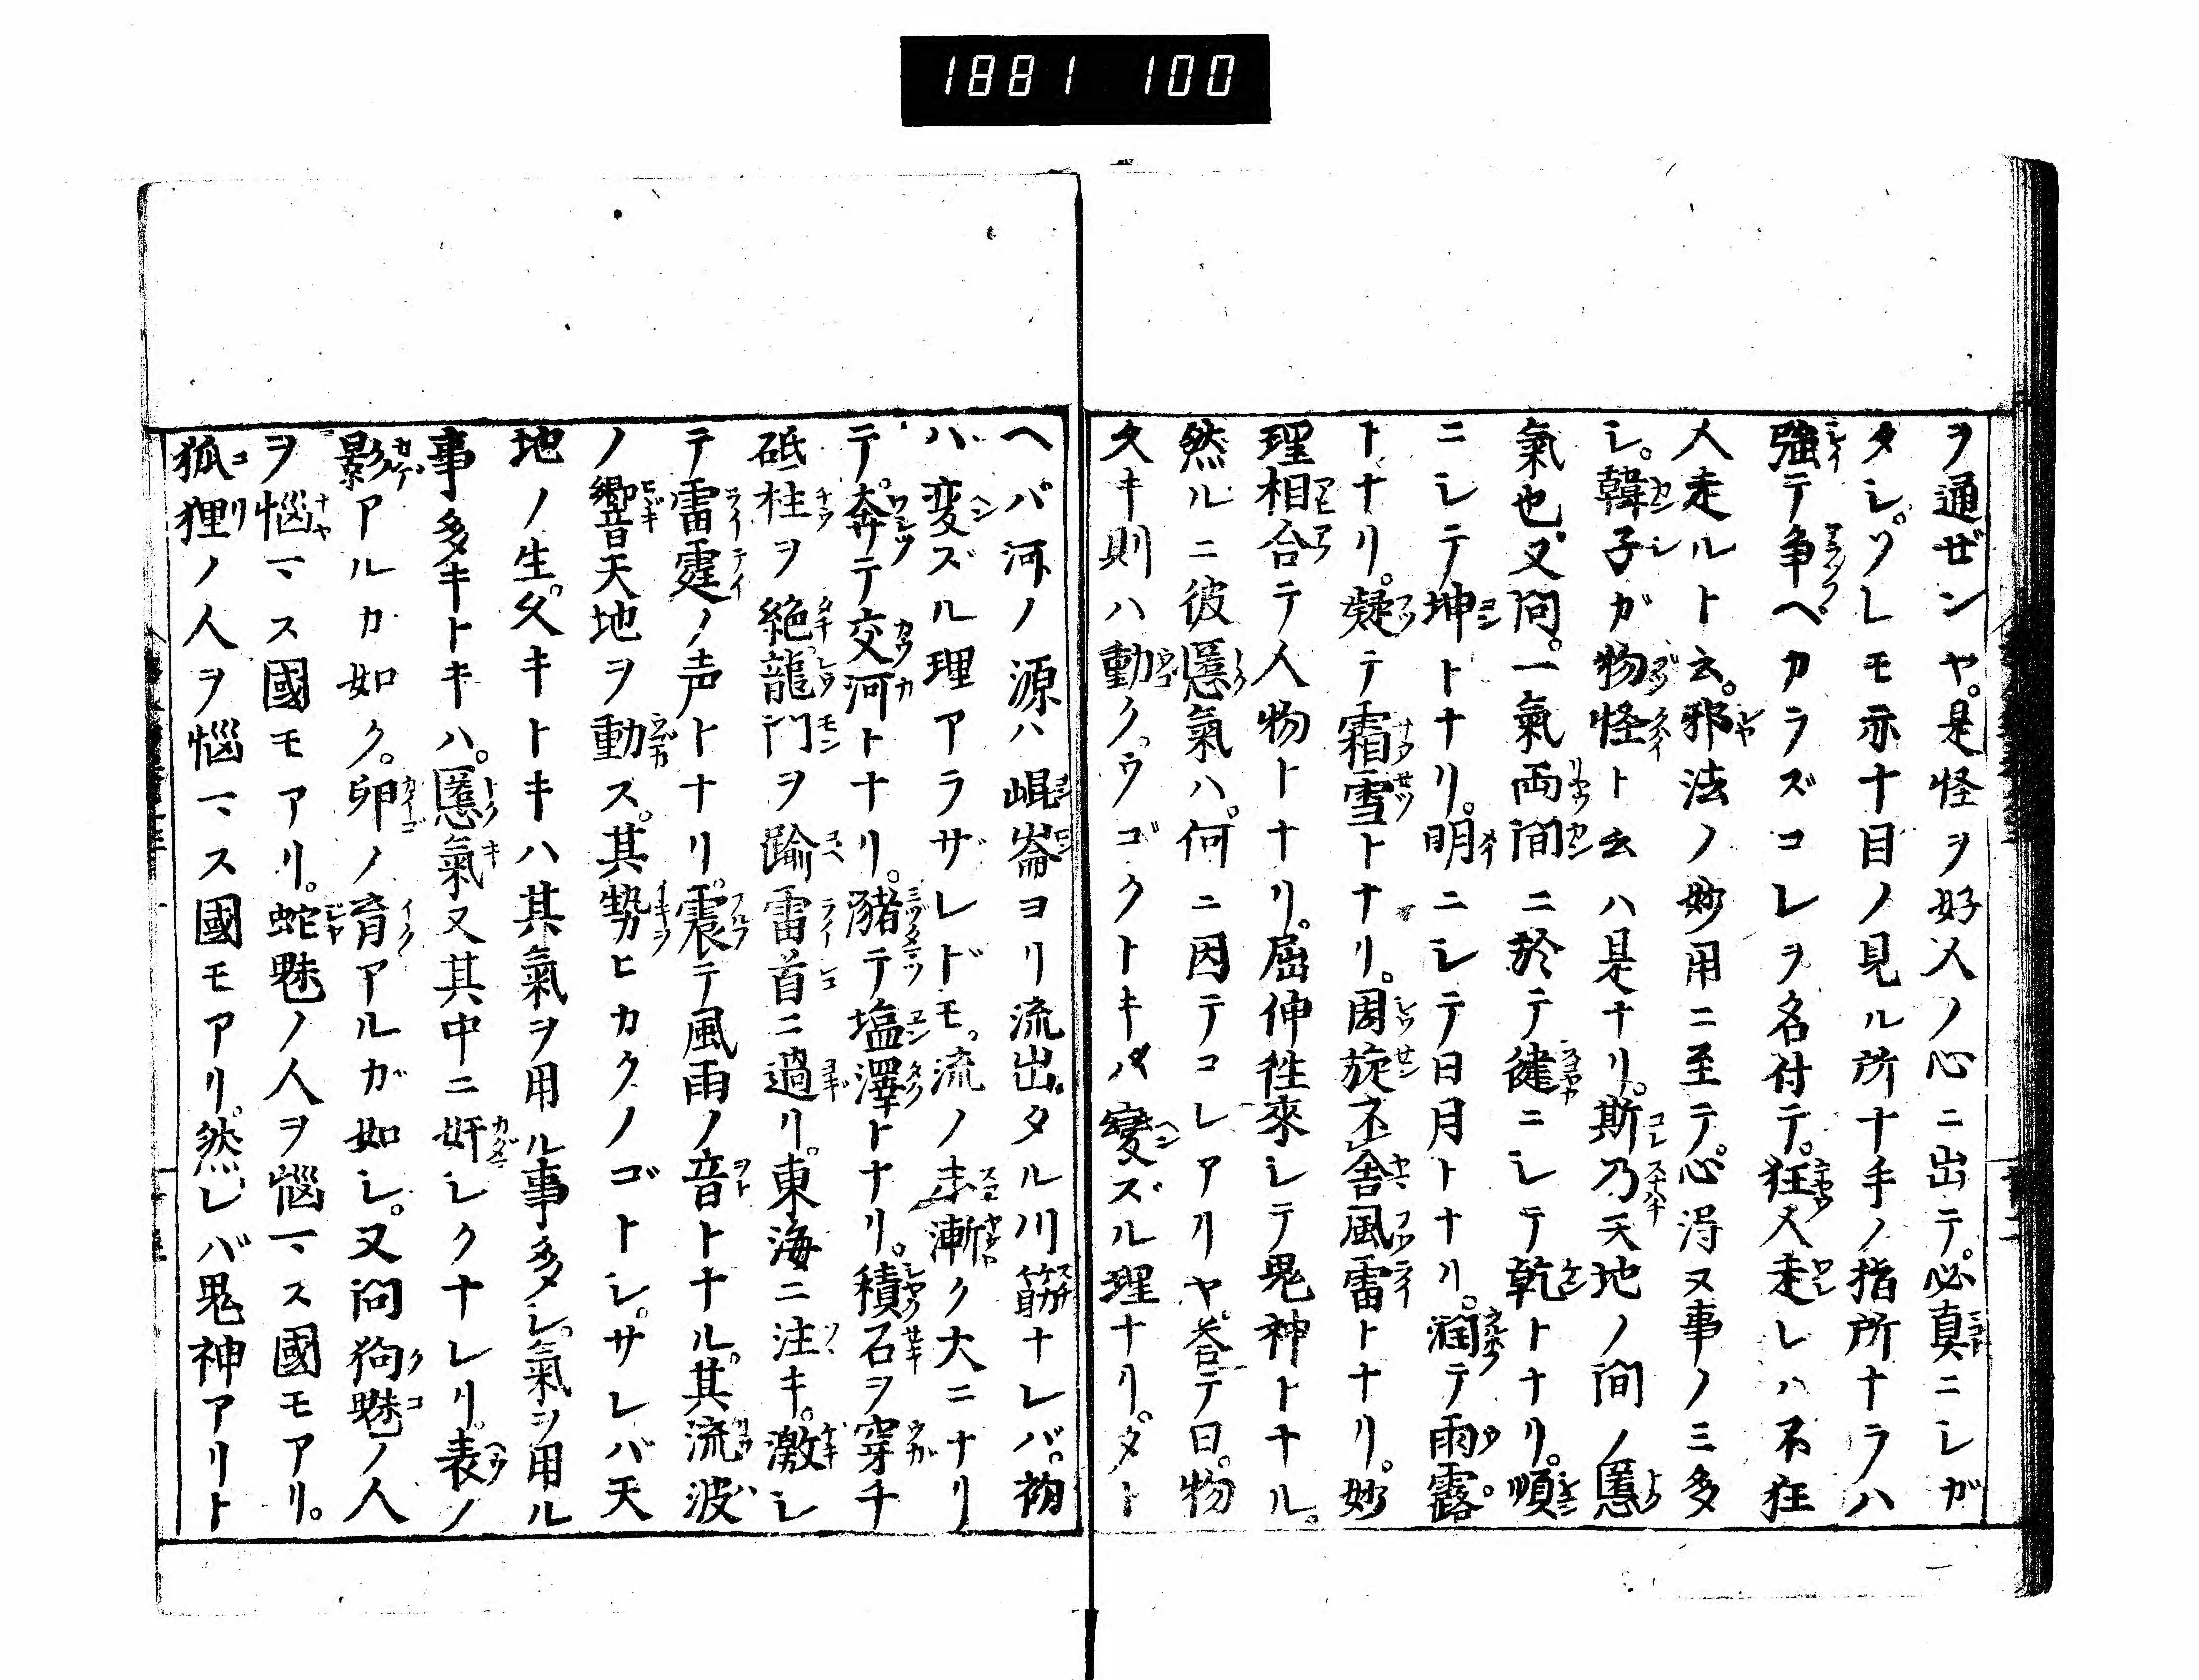 1881 100
ヲ通ゼンヤ。是怪ヲ好人ノ心ニ出テ。必真ニシガ
タシ。ソレモ亦十目ノ見ル所十手ノ指所ナラハ
強テ争ヘカラズコレヲ名付テ。狂人走レハ不狂
人走ルト云。邪法ノ妙用ニ至テ。心得ヌ事ノミ多
シ。韓子ガ物怪ト云ハ是ナリ。斯乃天地ノ間ノ慝
氣也。又問。一氣両間ニ於テ健ニシテ乾トナリ。順
ニシテ坤トナリ。明ニシテ日月トナリ。潤テ雨露
トナリ。凝テ霜雪トナリ。周旋シ舎風雷トナリ。妙
理相合テ人物トナリ。屈伸往來シテ鬼神トナル。
然ルニ彼慝氣ハ。何ニ因テコレアリヤ。答テ曰。物
久キ則ハ動ク。ウゴクトキハ變ズル理ナリ。タト
ヘバ河ノ源ハ崐崙ヨリ流出タル川筋ナレバ。初
ハ変ズル理アラザレドモ。流ノ末漸ク大ニナリ
テ。奔テ交河トナリ。瀦テ塩澤トナリ。積石ヲ穿チ
砥柱ヲ絶龍門ヲ踰雷首ニ過リ。東海ニ注キ。激シ
テ雷霆ノ声トナリ。震テ風雨ノ音トナル。其流波
ノ響天地ヲ動ス。其勢ヒカクノゴトシ。サレバ天
地ノ生。久キトキハ其氣ヲ用ル事多シ。氣ヲ用ル
事多キトキハ。慝氣又其中ニ奸シクナレリ。表ノ
影アルカ如ク。卵ノ育アルガ如シ。又問狗魅ノ人
ヲ惱マス國モアリ。蛇魅ノ人ヲ惱マス國モアリ。
狐狸ノ人ヲ惱マス國モアリ。然レバ鬼神アリト